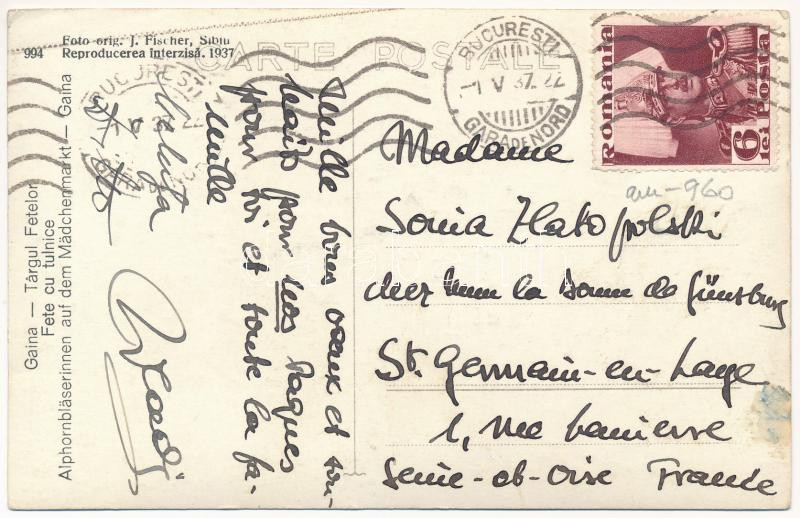 Foto orig. J. Fischer, Sibiu
994 Reproducerea interzisă. 1937
CARTE POSTALE
BUCUREȘTI
-1 V 37. 22
GARA de NORD
BUCUREȘTI
GARA de NORD
Romania
6 lei Posta
Gaina — Târgul Fetelor
Fete cu tulnice
Alphornbläserinnen auf dem Mädchenmarkt — Gaina
Mille bons vœux et sou-
haits pour nos Paques
pour toi et toute la fa-
mille
Madame
Sonia Zlatopolski
chez la de Günsburg
St. Germain-en-Laye
1, rue
Seine-et-Oise France